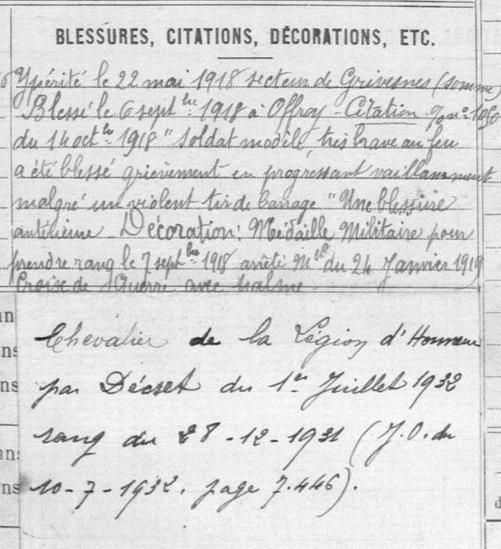 BLESSURES, CITATIONS, DÉCORATIONS, ETC.
Ypérité le 22 mai 1918 secteur de Grivesnes (Somme)
Blessé le 6 sept bre 1918 à Offroy - Citation
du 14 oct bre 1918 "Soldat modèle très brave au feu
a été blessé grièvement en progressant vaillamment
malgré un violent tir de barrage" Une blessure
antérieure Décoration: Médaille Militaire pour
prendre rang le 7 sept bre 1918 arrêté Mel du 24 Janvier 1919
Croix de Guerre avec palme
Chevalier de la Légion d'Honneur
par Décret du 1er Juillet 1932
rang du 28-12-1931 (J.O. du
10-7-1932, page 7.446).